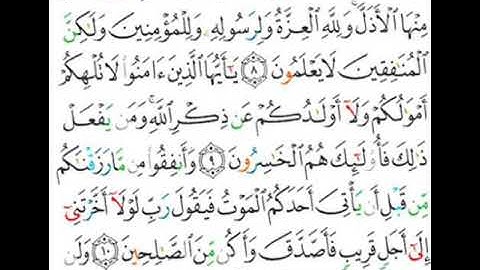 مِنْهَا ٱلْأَذَلَّ ۚ وَلِلَّهِ ٱلْعِزَّةُ وَلِرَسُولِهِۦ وَلِلْمُؤْمِنِينَ وَلَٰكِنَّ
ٱلْمُنَٰفِقِينَ لَا يَعْلَمُونَ ٨ يَٰٓأَيُّهَا ٱلَّذِينَ ءَامَنُوا۟ لَا تُلْهِكُمْ
أَمْوَٰلُكُمْ وَلَآ أَوْلَٰدُكُمْ عَن ذِكْرِ ٱللَّهِ ۚ وَمَن يَفْعَلْ
ذَٰلِكَ فَأُو۟لَٰٓئِكَ هُمُ ٱلْخَٰسِرُونَ ٩ وَأَنفِقُوا۟ مِن مَّا رَزَقْنَٰكُم
مِّن قَبْلِ أَن يَأْتِىَ أَحَدَكُمُ ٱلْمَوْتُ فَيَقُولَ رَبِّ لَوْلَآ أَخَّرْتَنِىٓ
إِلَىٰٓ أَجَلٍ قَرِيبٍ فَأَصَّدَّقَ وَأَكُن مِّنَ ٱلصَّٰلِحِينَ ١٠ وَلَن